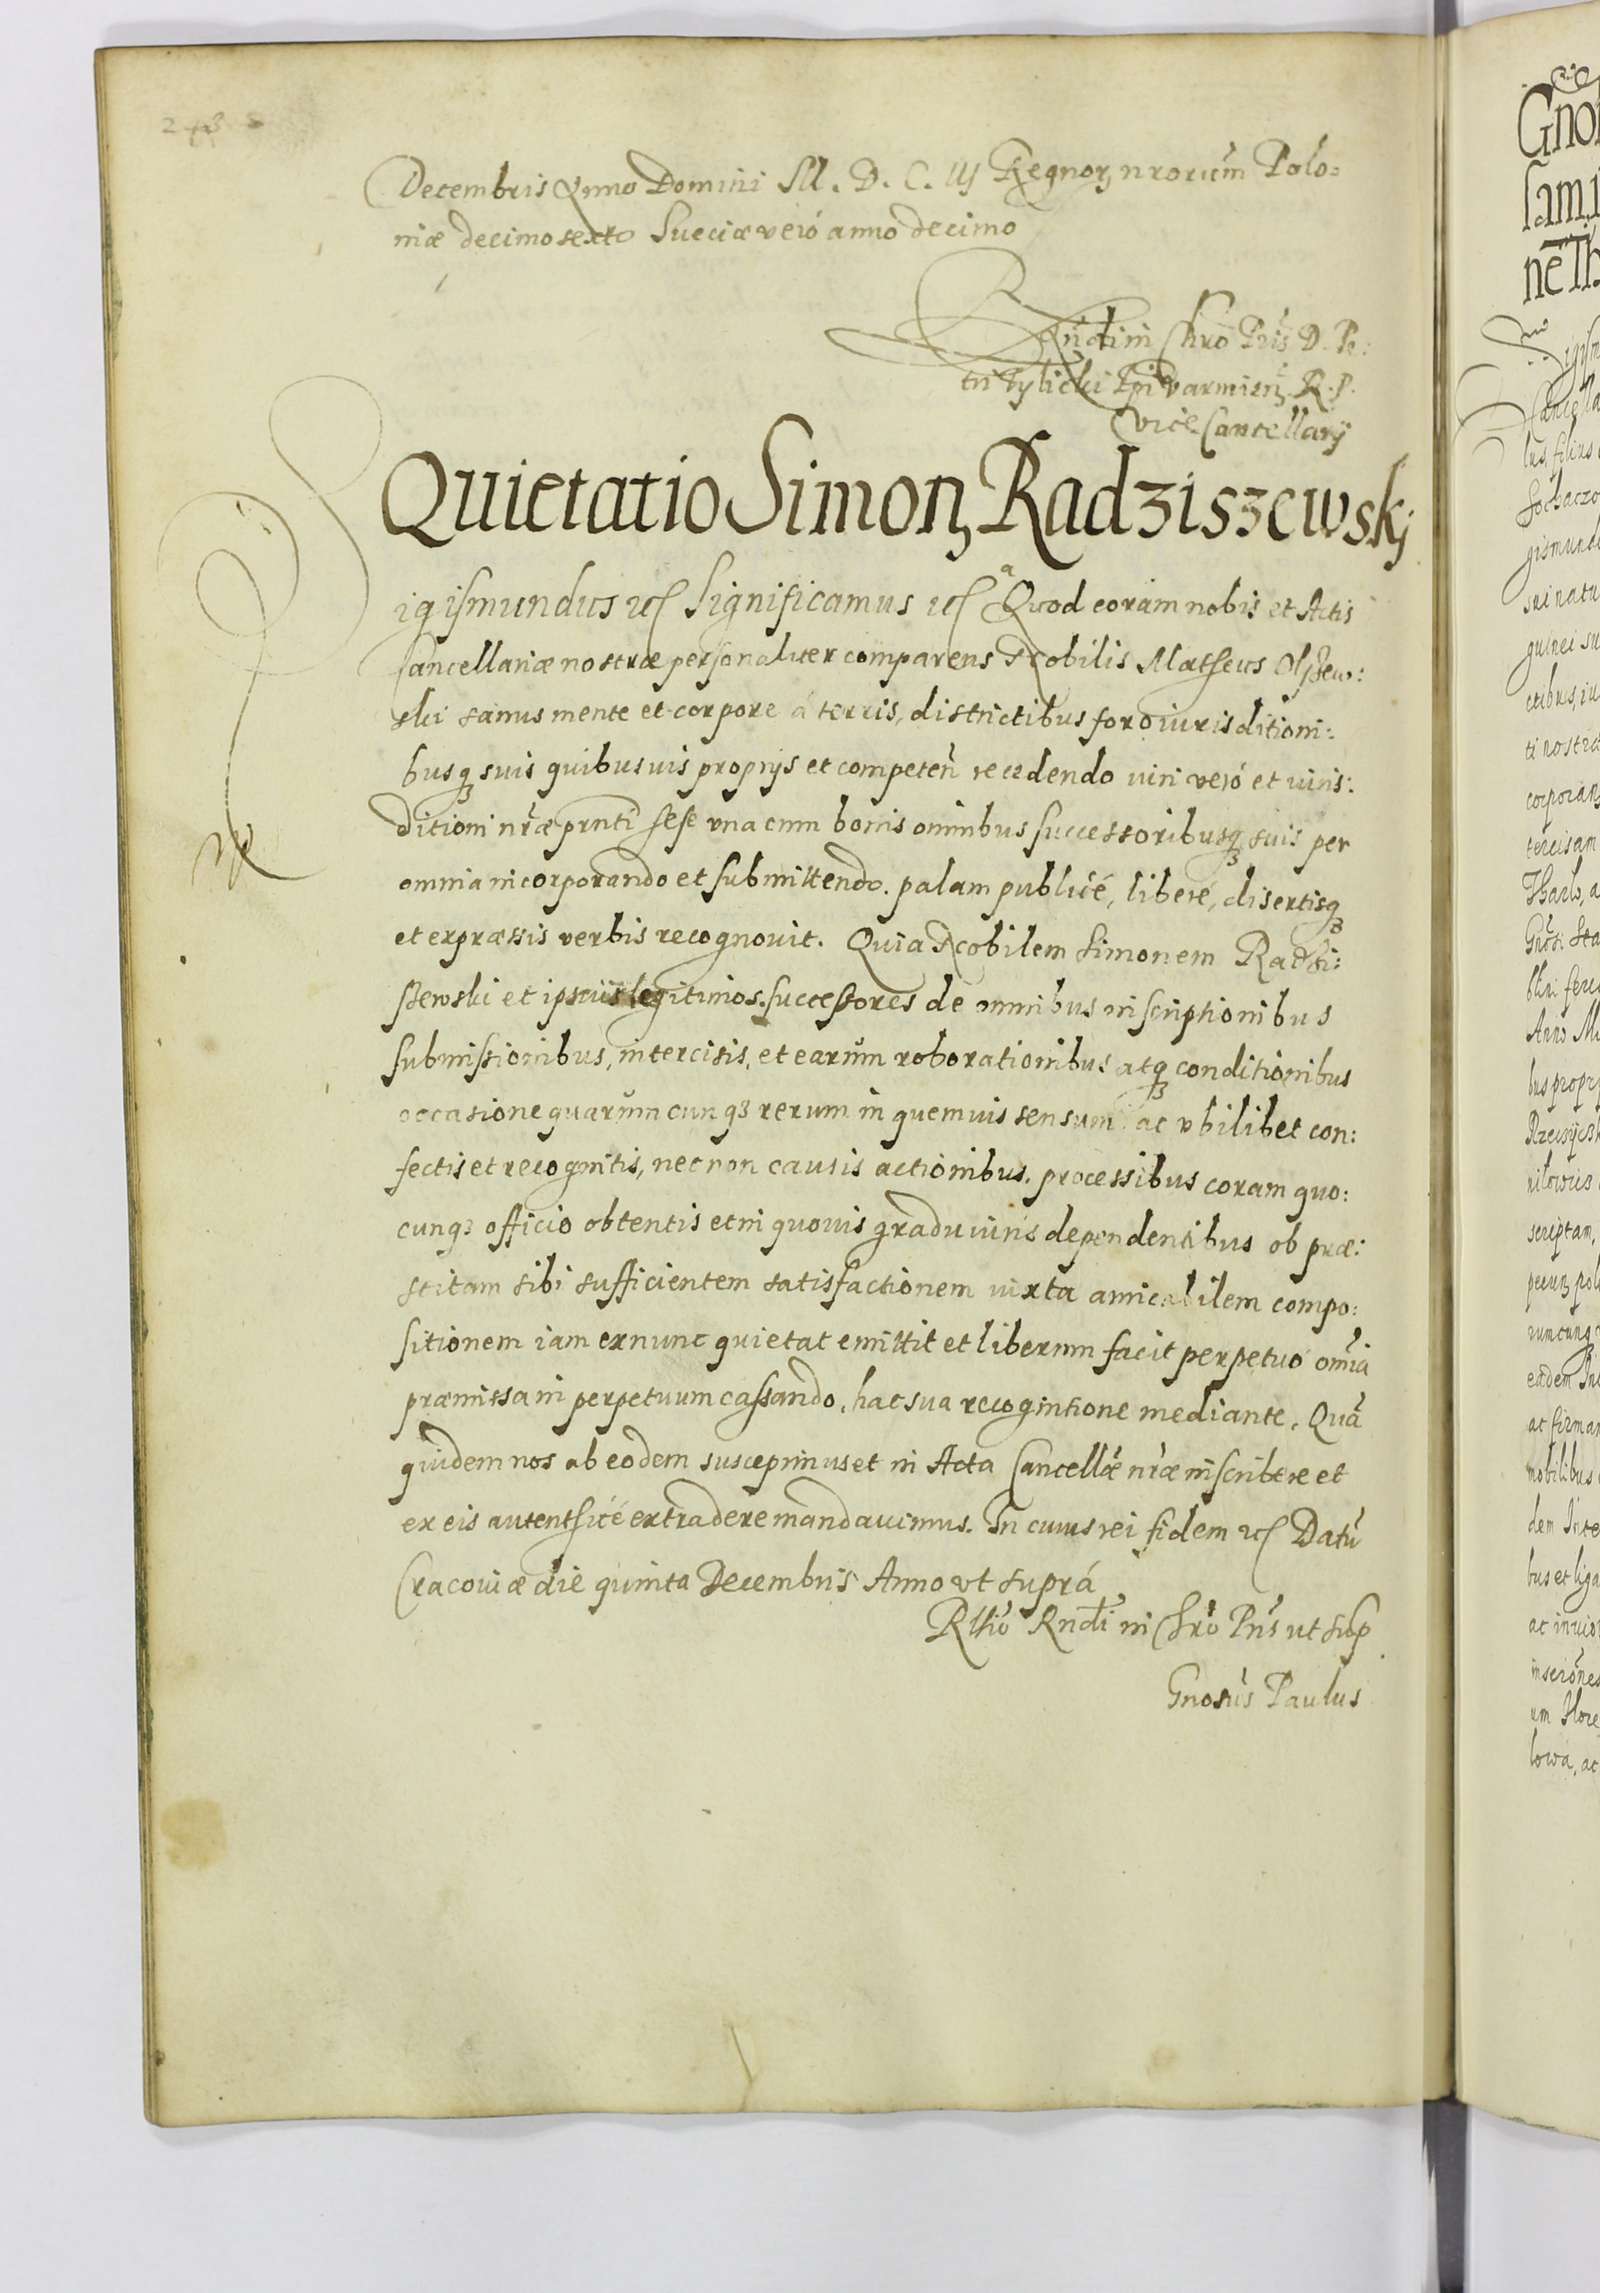 Decembris Anno Domini M. D. C. IIJ Regnoꝝ nrorum Polo:
niæ decimosexto Sueciæ veró anno decimo
Rndi in Chro Pris D. Pe:
tri Tylicki Epi Varmien R. P.
Vice Cancellarij
Quietatio Simonꝫ Radziszewskj
Sigismundus etc Significamus etc Quod coram nobis et Actis
Cancellariæ nostræ personaliter comparens Nobilis Mathæus Olszew:
ski sanus mente et corpore á terris, districtibus foro iurisditioni:
busqꝫ suis quibusuis proprijs et competen recedendo iuri veró et iuris:
ditioni nræ prnti sese vna cum bonis omnibus successoribusqꝫ suis per
omnia incorporando et submittendo. palam publicé, liberé, disertisqꝫ
et expræssis verbis recognouit. Quia Nobilem Simonem Radzi:
szewski et ipsius legitimos successores de omnibus inscriptionibus
submissionibus, intercisis, et earum roborationibus atqꝫ conditionibus
occasione quarumcunqꝫ rerum in quemuis sensum ac vbilibet con:
fectis et recognitis, nec non causis actionibus. processibus coram quo:
cunqꝫ officio obtentis et in quouis gradu iuris dependentibus ob præ:
stitam sibi sufficientem satisfactionem iuxta amicabilem compo:
sitionem iam ex nunc quietat emittit et liberum facit perpetuó omia
præmissa in perpetuum cassando, hac sua recognitione mediante. Quã
quidem nos ab eodem suscepimus et in Acta Cancellæ nræ inscribere et
ex eis autenthicé extradere mandauimus. In cuius rei fidem etc Datũ
Cracouiæ die quinta Decembris Anno vt suprá
Rltio Rndi in Chro Pris ut sup
Gnosus Paulus